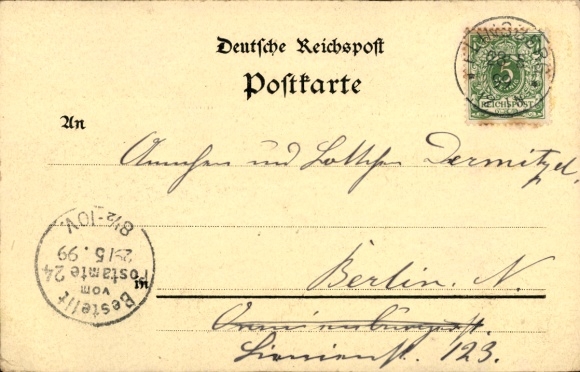 Deutsche Reichspost
Postkarte
5
REICHSPOST
An
Annchen und Lottchen Dermitzel,
Bestellt
vom
Postamte 24
29/5.99
8½-10V.
in
Berlin. N.
Linienst. 123.